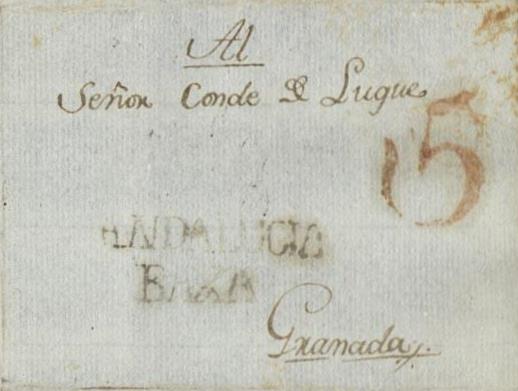 Al
Señor Conde de Luque
5
ANDALUCIA
BAXA
Granada